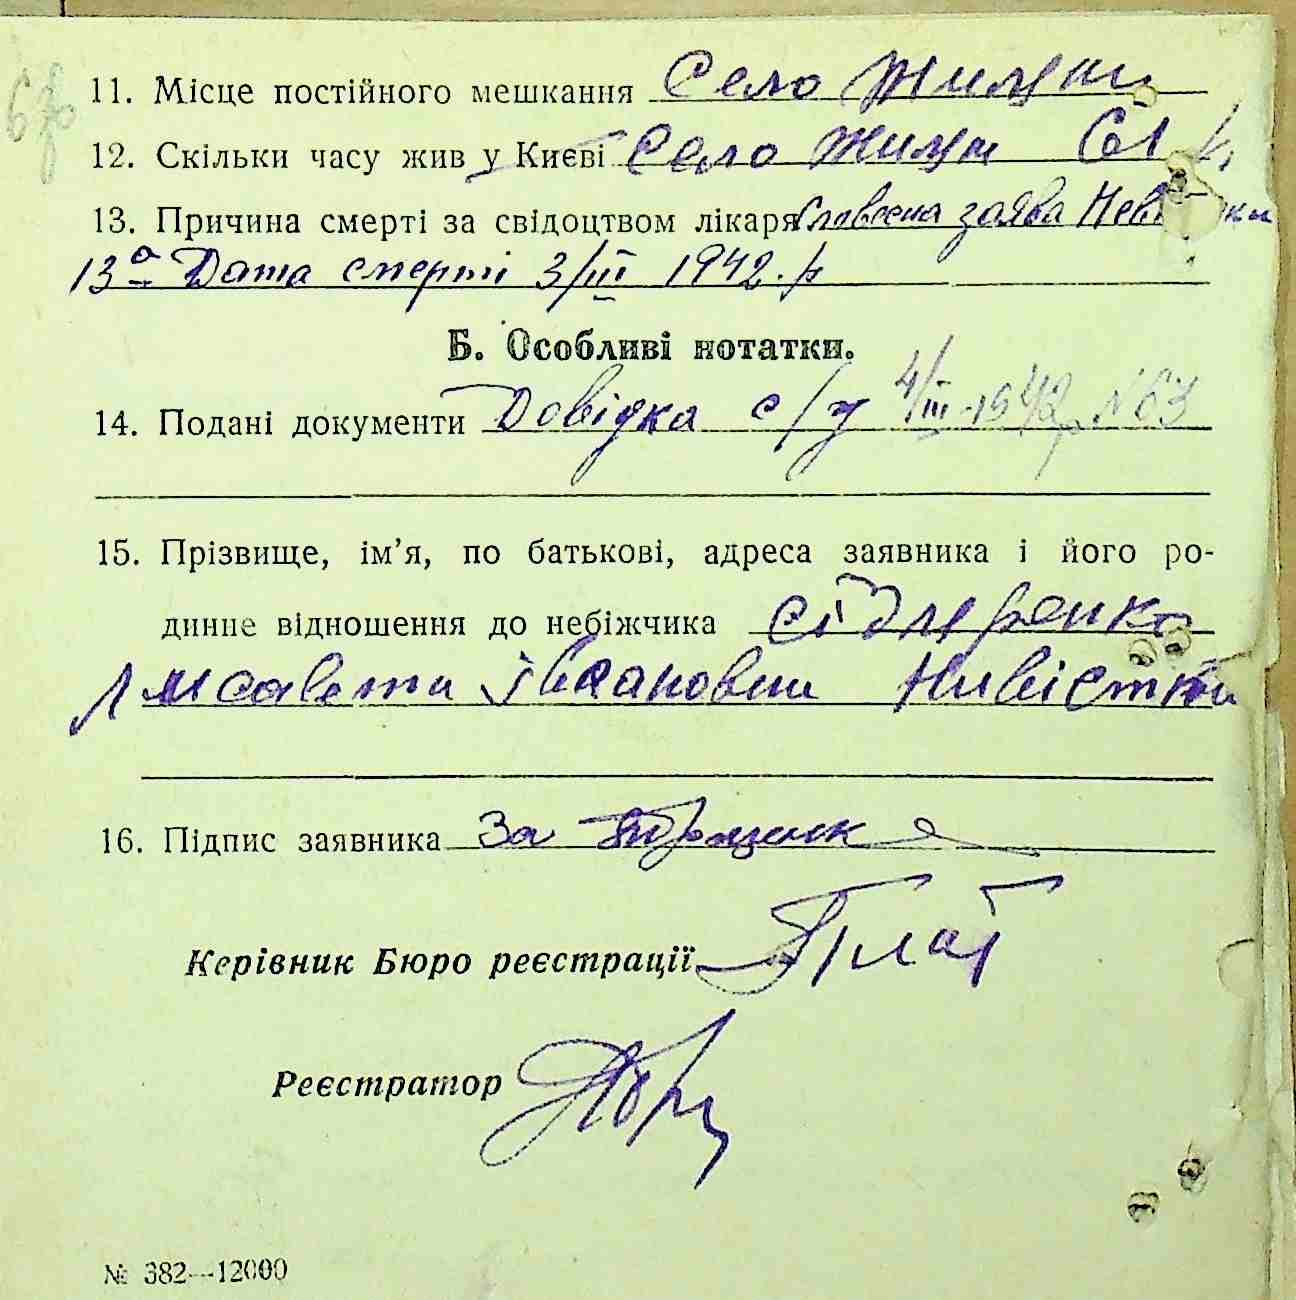 11. Місце постійного мешкання Село Жиляни
12. Скільки часу жив у Києві село Жиляни 61 р.
13. Причина смерті за свідоцтвом лікаря Словесна заява
13а Дата смерті 3/III 1942. р
Б. Особливі нотатки.
14. Подані документи Довідка с/у 4/III-1942р N63
15. Прізвище, ім’я, по батькові, адреса заявника і його ро-
динне відношення до небіжчика Сідлеренко
Лисавета Івановна Нивістка
16. Підпис заявника За
Керівник Бюро реєстрації
Реєстратор
№ 382—12000